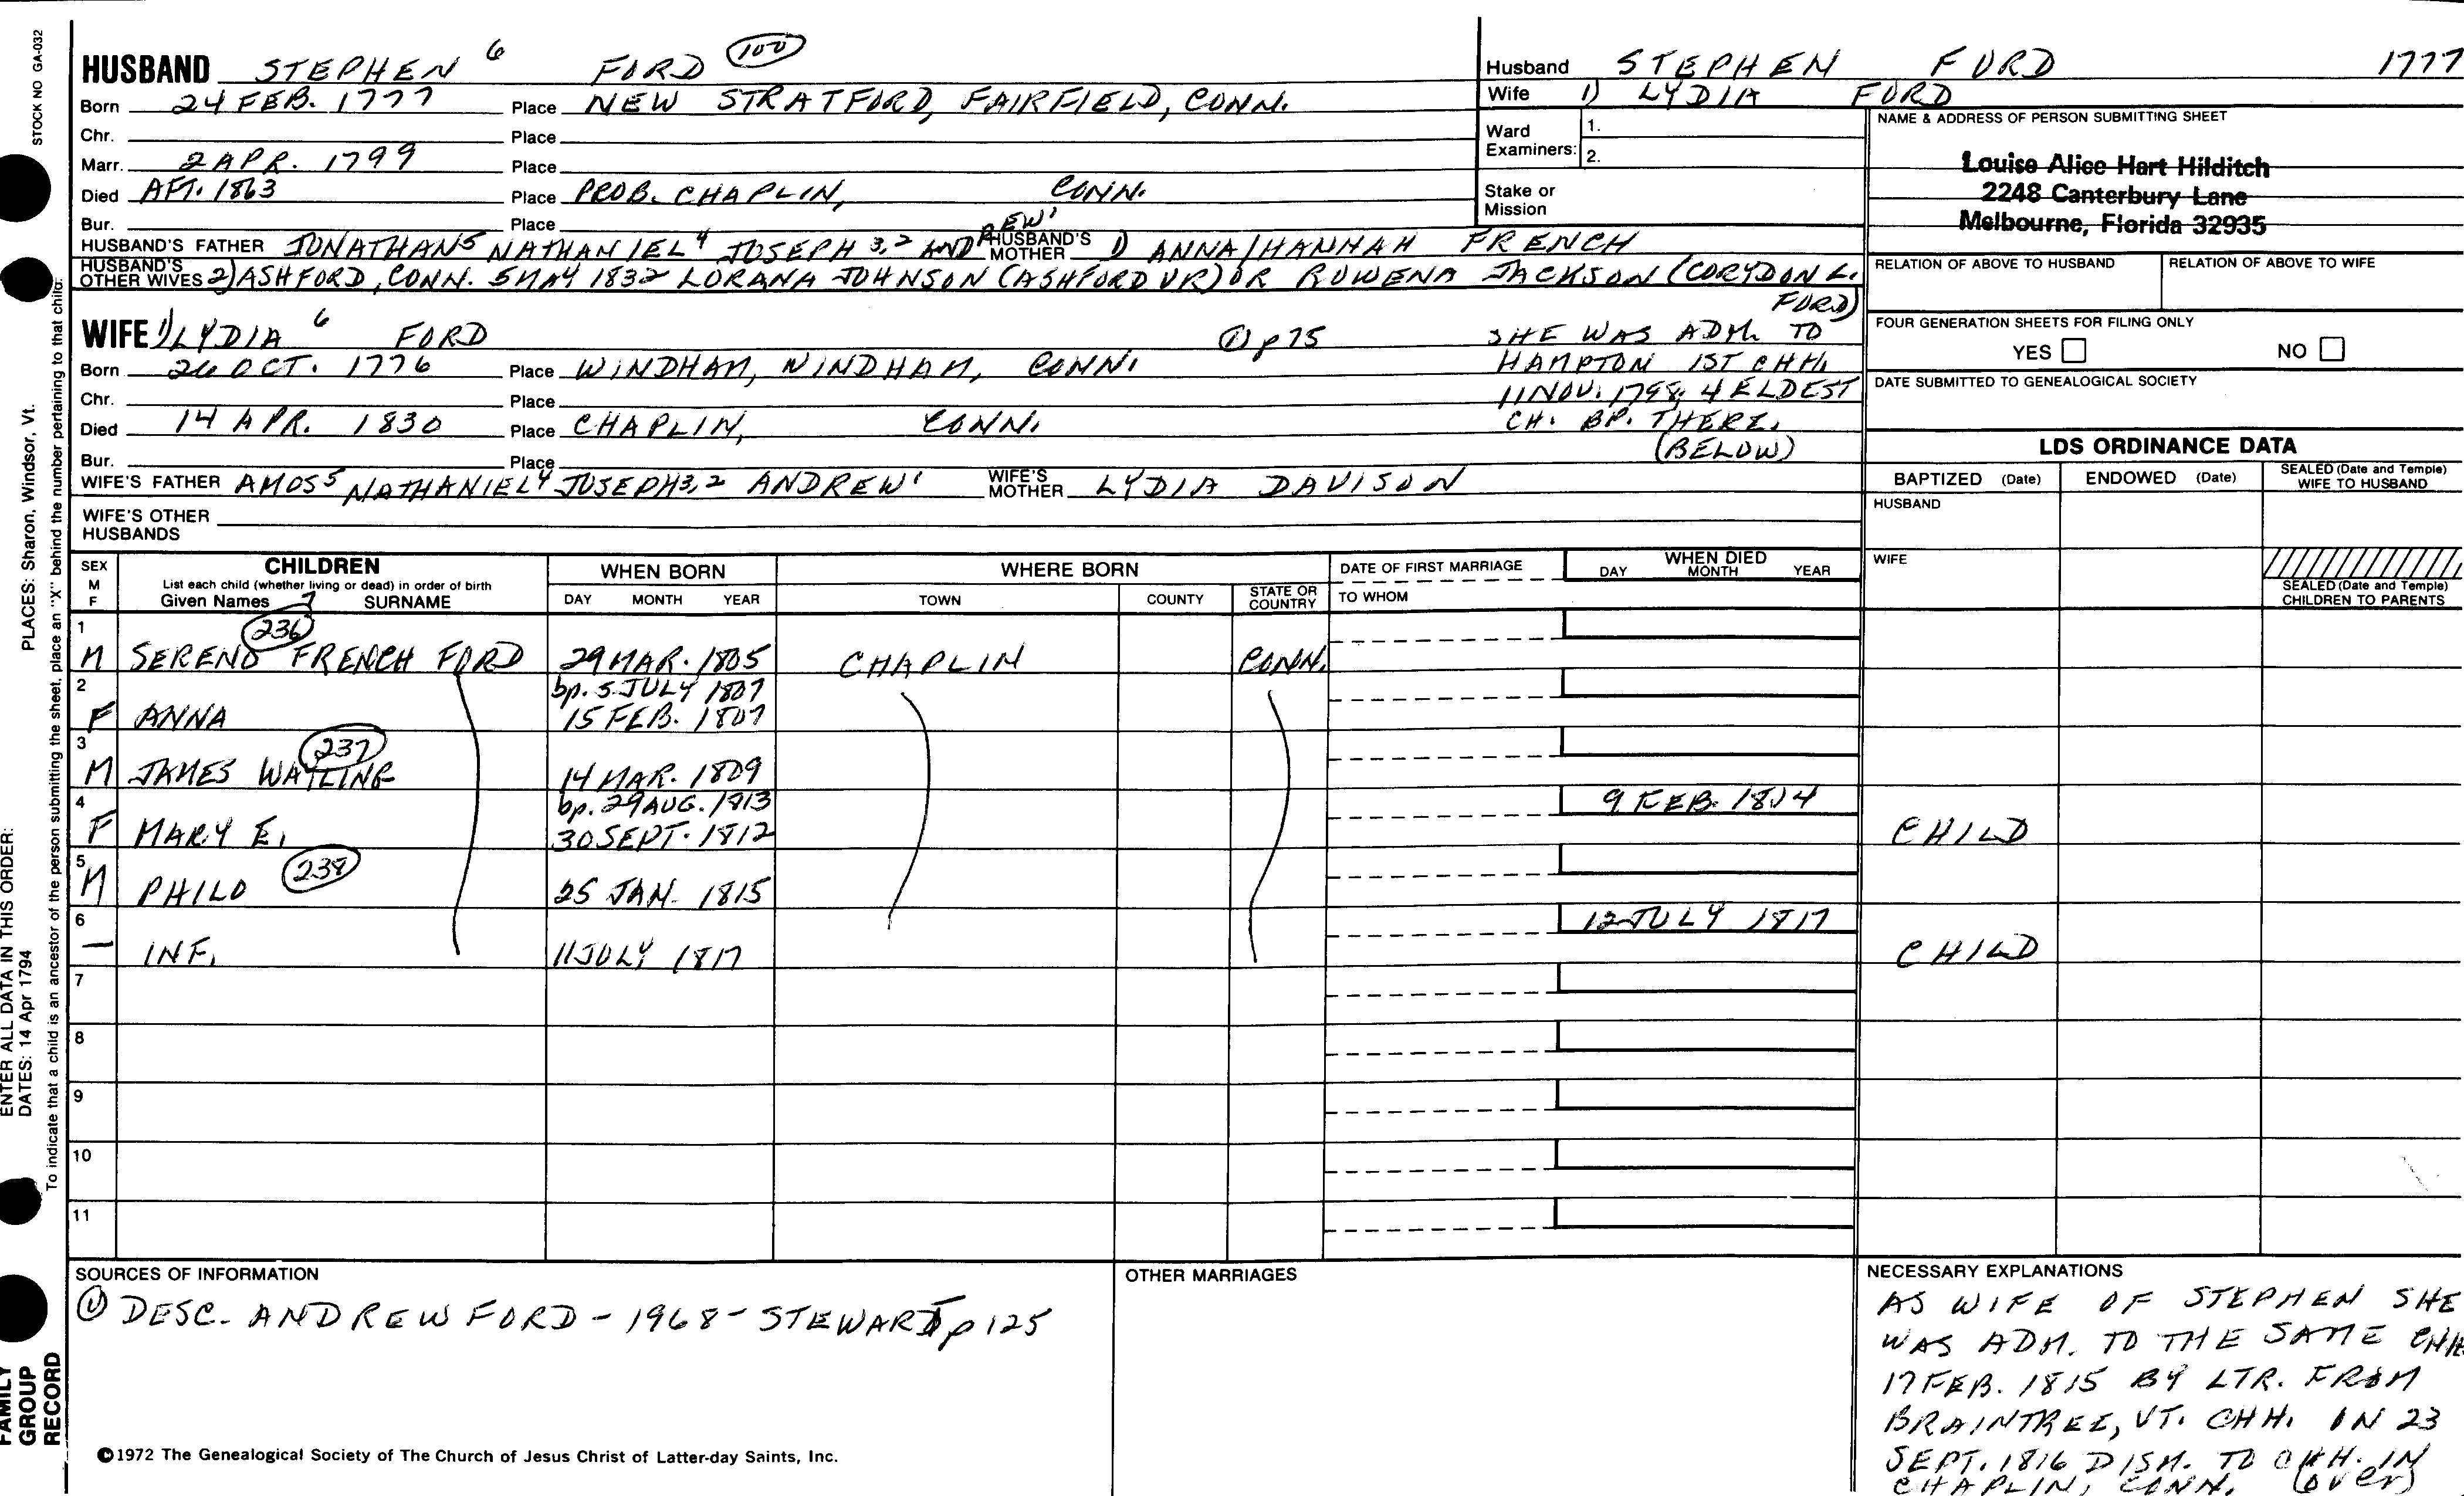 STOCK NO GA-032
HUSBAND STEPHEN 6 FORD 100
Born 24 FEB. 1777 Place NEW STRATFORD, FAIRFIELD, CONN.
Chr. Place
Marr. 2 APR. 1799 Place
Died AFT. 1863 Place PROB. CHAPLIN, CONN.
Bur. Place
HUSBAND'S FATHER JONATHAN5 NATHANIEL4 JOSEPH 3,2 AND REW1 HUSBAND'S MOTHER 1) ANNA/HANNAH FRENCH
HUSBAND'S OTHER WIVES 2) ASHFORD, CONN. 5 MAY 1832 LORANA JOHNSON (ASHFORD VR) OR ROWENA JACKSON (CORYDON L. FORD)
WIFE 1) LYDIA 6 FORD ① p75
Born 26 OCT. 1776 Place WINDHAM, WINDHAM, CONN.
Chr. Place
Died 14 APR. 1830 Place CHAPLIN, CONN.
Bur. Place
SHE WAS ADM. TO
HAMPTON 1ST CHH.
11 NOV. 1798, 4 ELDEST
CH. BP. THERE.
(BELOW)
WIFE'S FATHER AMOS5 NATHANIEL4 JOSEPH3,2 ANDREW1 WIFE'S MOTHER LYDIA DAVISON
WIFE'S OTHER HUSBANDS
Husband STEPHEN FORD 1777
Wife 1) LYDIA FORD
Ward Examiners: 1.
2.
Stake or Mission
NAME & ADDRESS OF PERSON SUBMITTING SHEET
Louise Alice Hart Hilditch
2248 Canterbury Lane
Melbourne, Florida 32935
RELATION OF ABOVE TO HUSBAND RELATION OF ABOVE TO WIFE
FOUR GENERATION SHEETS FOR FILING ONLY
YES NO
DATE SUBMITTED TO GENEALOGICAL SOCIETY
LDS ORDINANCE DATA
BAPTIZED (Date) ENDOWED (Date) SEALED (Date and Temple) WIFE TO HUSBAND
HUSBAND
WIFE
SEALED (Date and Temple) CHILDREN TO PARENTS
SEX M F CHILDREN WHEN BORN WHERE BORN DATE OF FIRST MARRIAGE WHEN DIED
List each child (whether living or dead) in order of birth
Given Names 7 SURNAME DAY MONTH YEAR TOWN COUNTY STATE OR COUNTRY TO WHOM DAY MONTH YEAR
1 236
M SERENO FRENCH FORD 29 MAR. 1805 CHAPLIN CONN.
2 bp. 5 JULY 1807
F ANNA 15 FEB. 1807
3 237
M JAMES WATLING 14 MAR. 1809
4 bp. 29 AUG. 1813 9 FEB. 1814
F MARY E. 30 SEPT. 1812 CHILD
5 238
M PHILO 25 JAN. 1815
6 12 JULY 1817
— INF. 11 JULY 1817 CHILD
7
8
9
10
11
SOURCES OF INFORMATION
① DESC. ANDREW FORD - 1968 - STEWART p 125
OTHER MARRIAGES
NECESSARY EXPLANATIONS
AS WIFE OF STEPHEN SHE
WAS ADM. TO THE SAME CHH
17 FEB. 1815 BY LTR. FROM
BRAINTREE, VT. CHH. ON 23
SEPT. 1816 DISM. TO CHH. IN
CHAPLIN, CONN. (over)
©1972 The Genealogical Society of The Church of Jesus Christ of Latter-day Saints, Inc.
FAMILY GROUP RECORD
ENTER ALL DATA IN THIS ORDER:
DATES: 14 Apr 1794
PLACES: Sharon, Windsor, Vt.
To indicate that a child is an ancestor of the person submitting the sheet, place an "X" behind the number pertaining to that child.